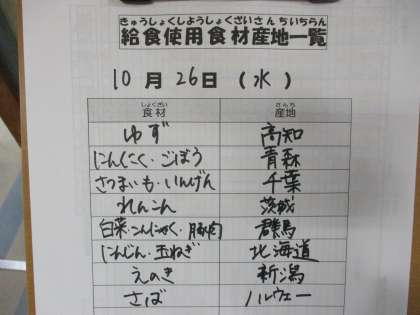 きゅうしょくしようしょくざいさんちいちらん
給食使用食材産地一覧
10月26日(水)
しょくざい さんち
食材 産地
ゆず 高知
にんにく・ごぼう 青森
さつまいも・いんげん 千葉
れんこん 茨城
白菜・こんにゃく・豚肉 群馬
にんじん・玉ねぎ 北海道
えのき 新潟
さば ノルウェー